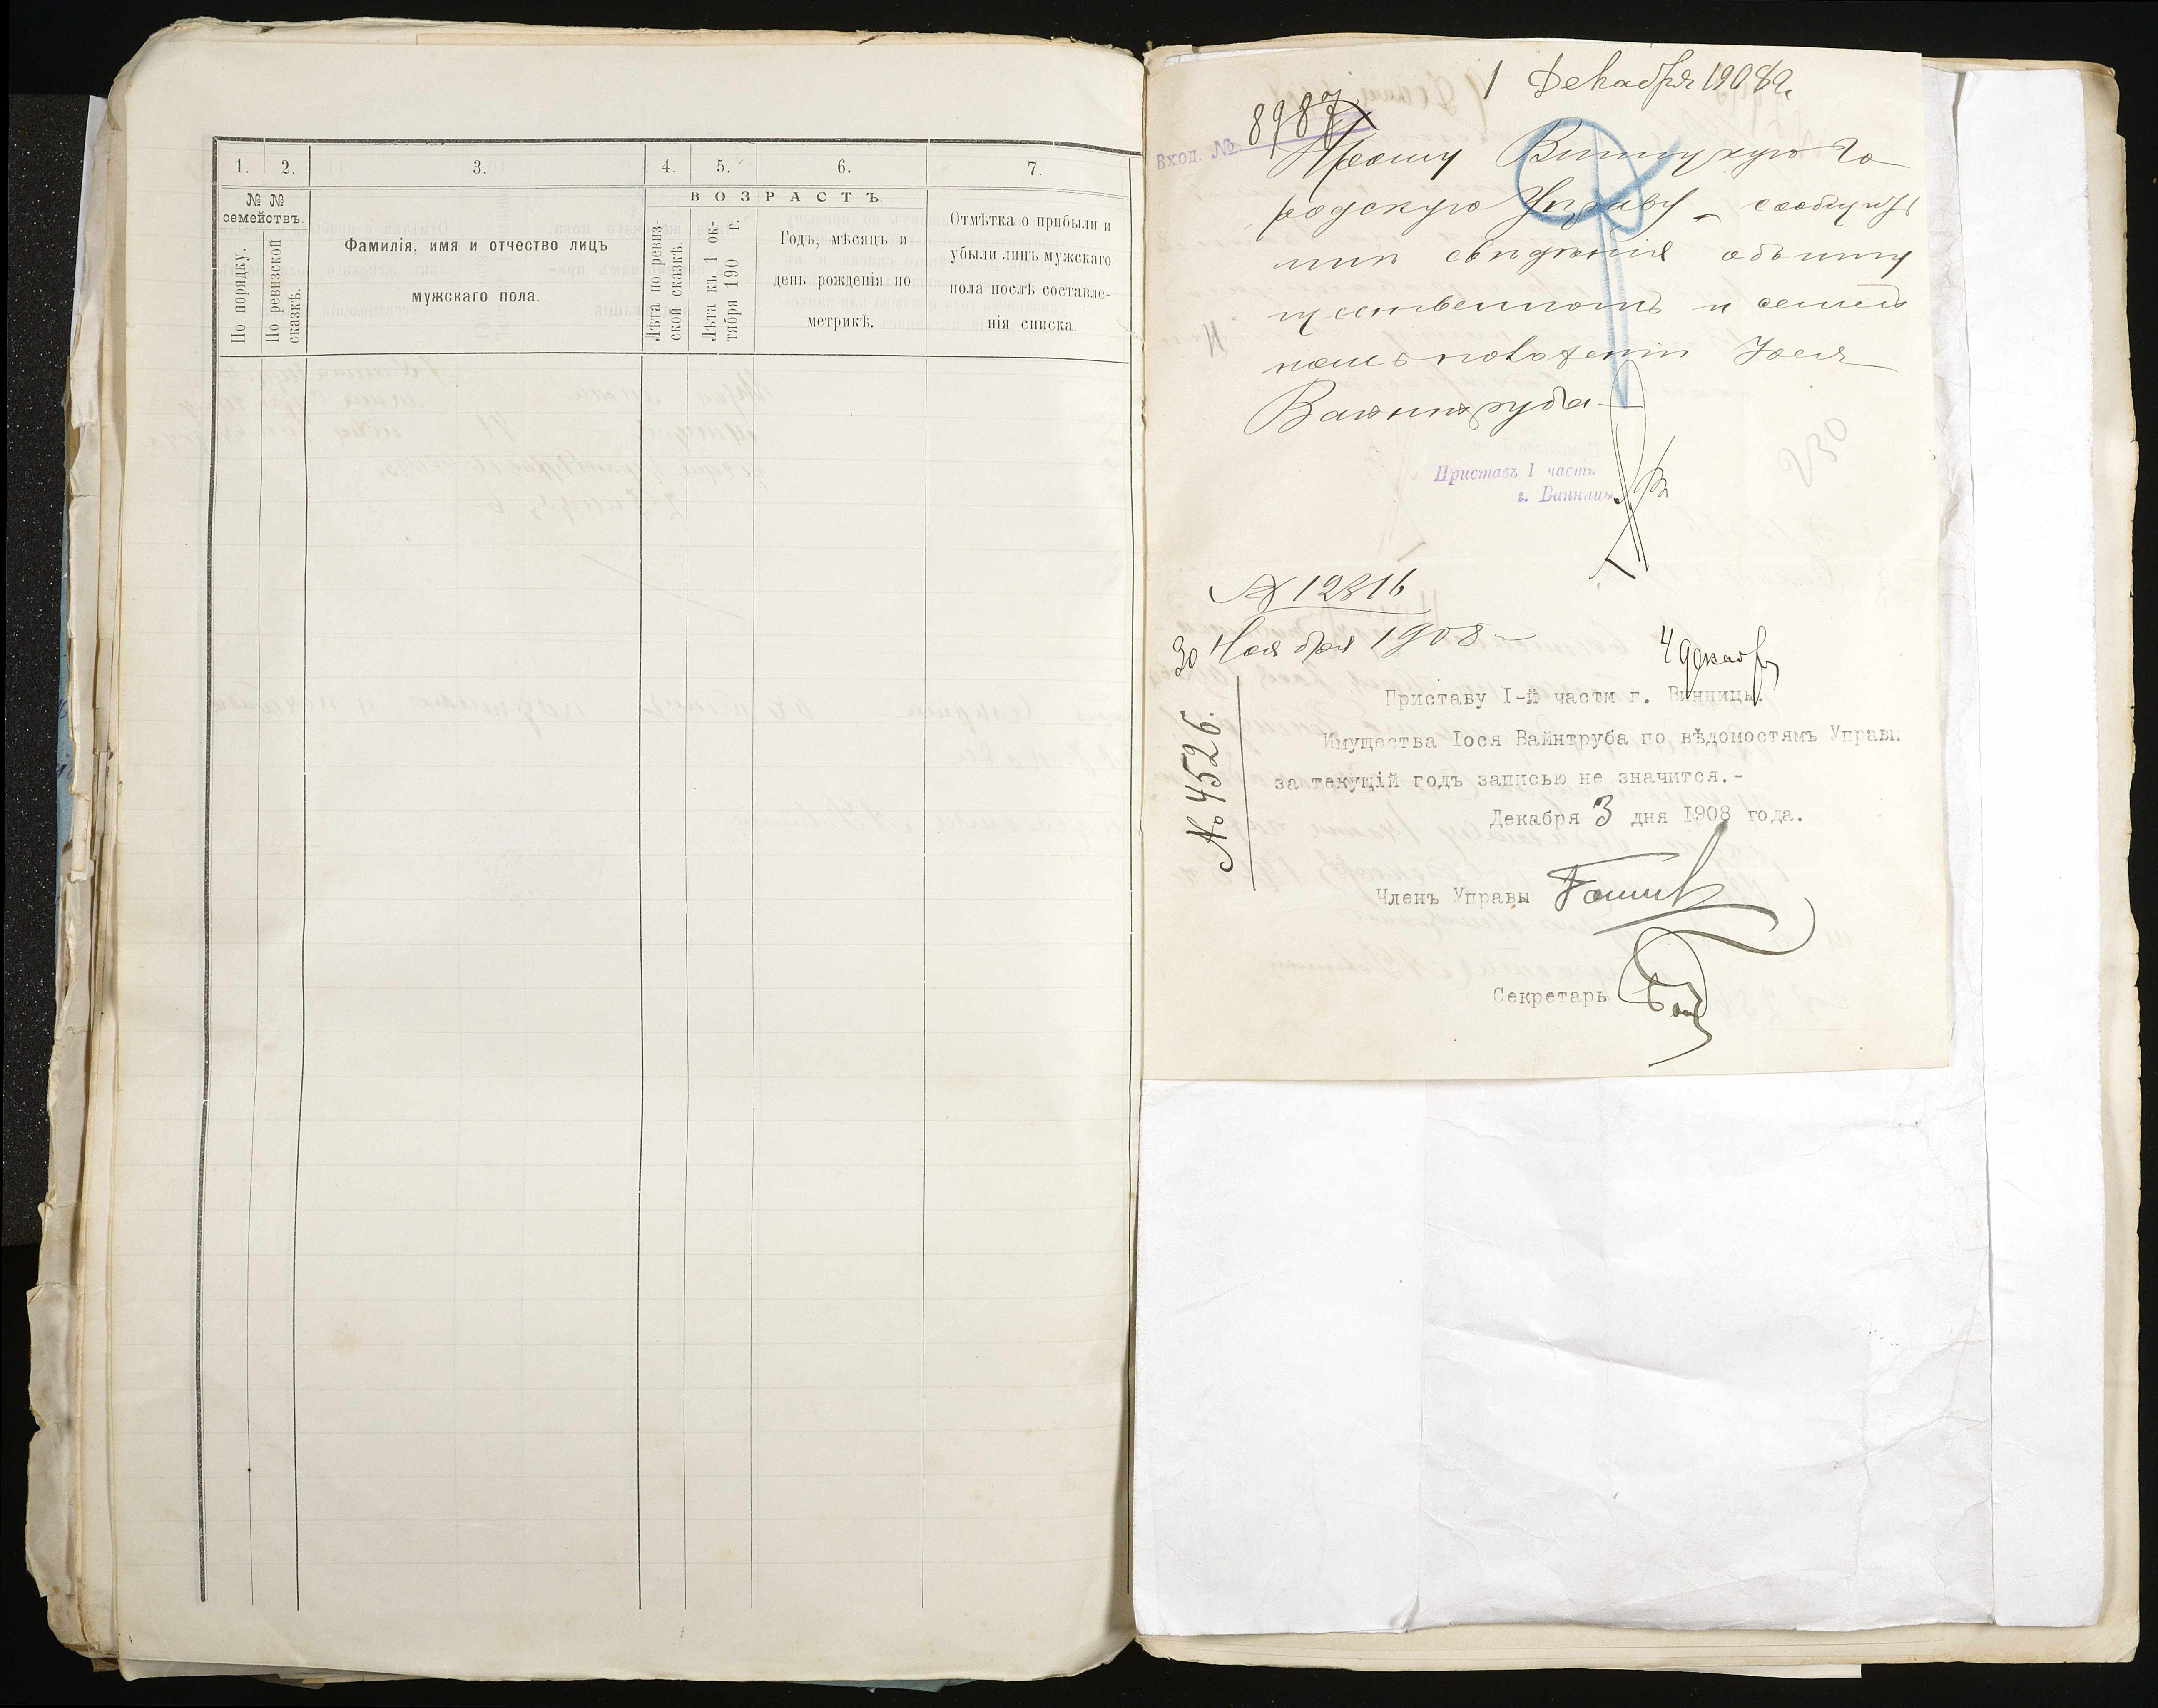 1. 2. 3. 4. 5. 6. 7.
№ №
семействъ.
По порядку.
По ревизской
сказкѣ.
Фамилія, имя и отчество лицъ
мужскаго пола.
ВОЗРАСТЪ.
Лѣта по ревиз-
ской сказкѣ.
Лѣта къ 1 ок-
тября 190 г.
Годъ, мѣсяцъ и
день рожденія по
метрикѣ.
Отмѣтка о прибыли и
убыли лицъ мужскаго
пола послѣ составле-
нія списка.
1 Декабря 1908 г.
Вход. № 8987
Прошу Винницкую Го
родскую Управу сообщить
мнѣ свѣдѣнія объ иму
щественномъ и семей
номъ положеніи Іося
Вайнтруба
Приставъ 1 части
г. Винницы
№ 12816
30 Ноября 1908
4 декабр
Приставу I-й части г. Винницы.
Имущества Іося Вайнтруба по вѣдомостямъ Управы
за текущій годъ записью не значится.-
Декабря 3 дня 1908 года.
№ 4526.
Членъ Управы
Секретарь